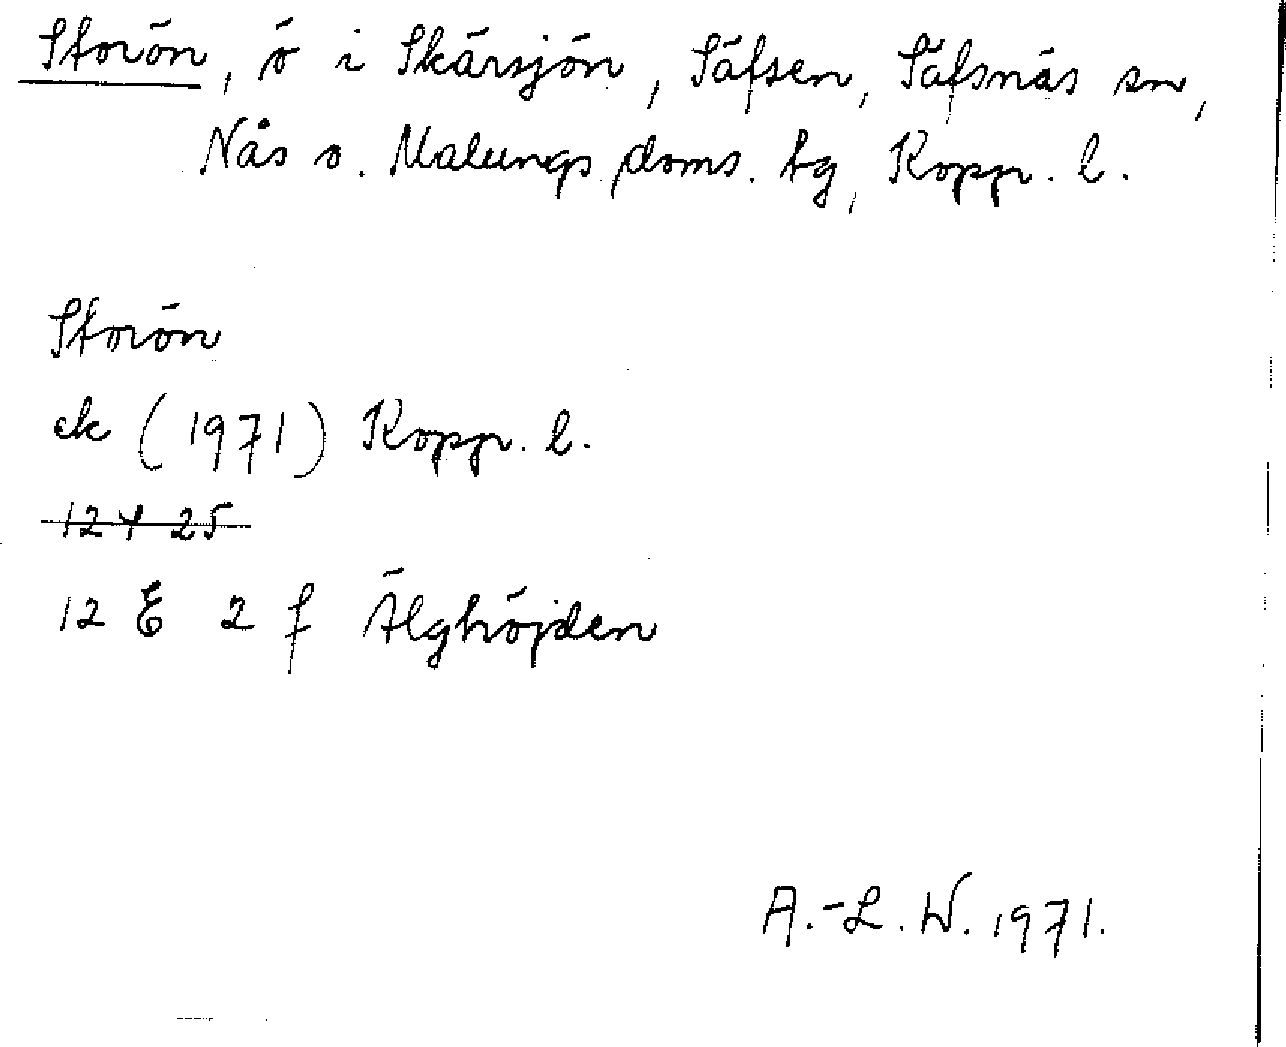 Storön, ö i Skärsjön, Säfsen, Säfsnäs sn,
Nås o. Malungs doms. tg, Kopp. l.
Storön
ek (1971) Kopp. l.
12 E 2 f Älghöjden
A.-L. W. 1971.